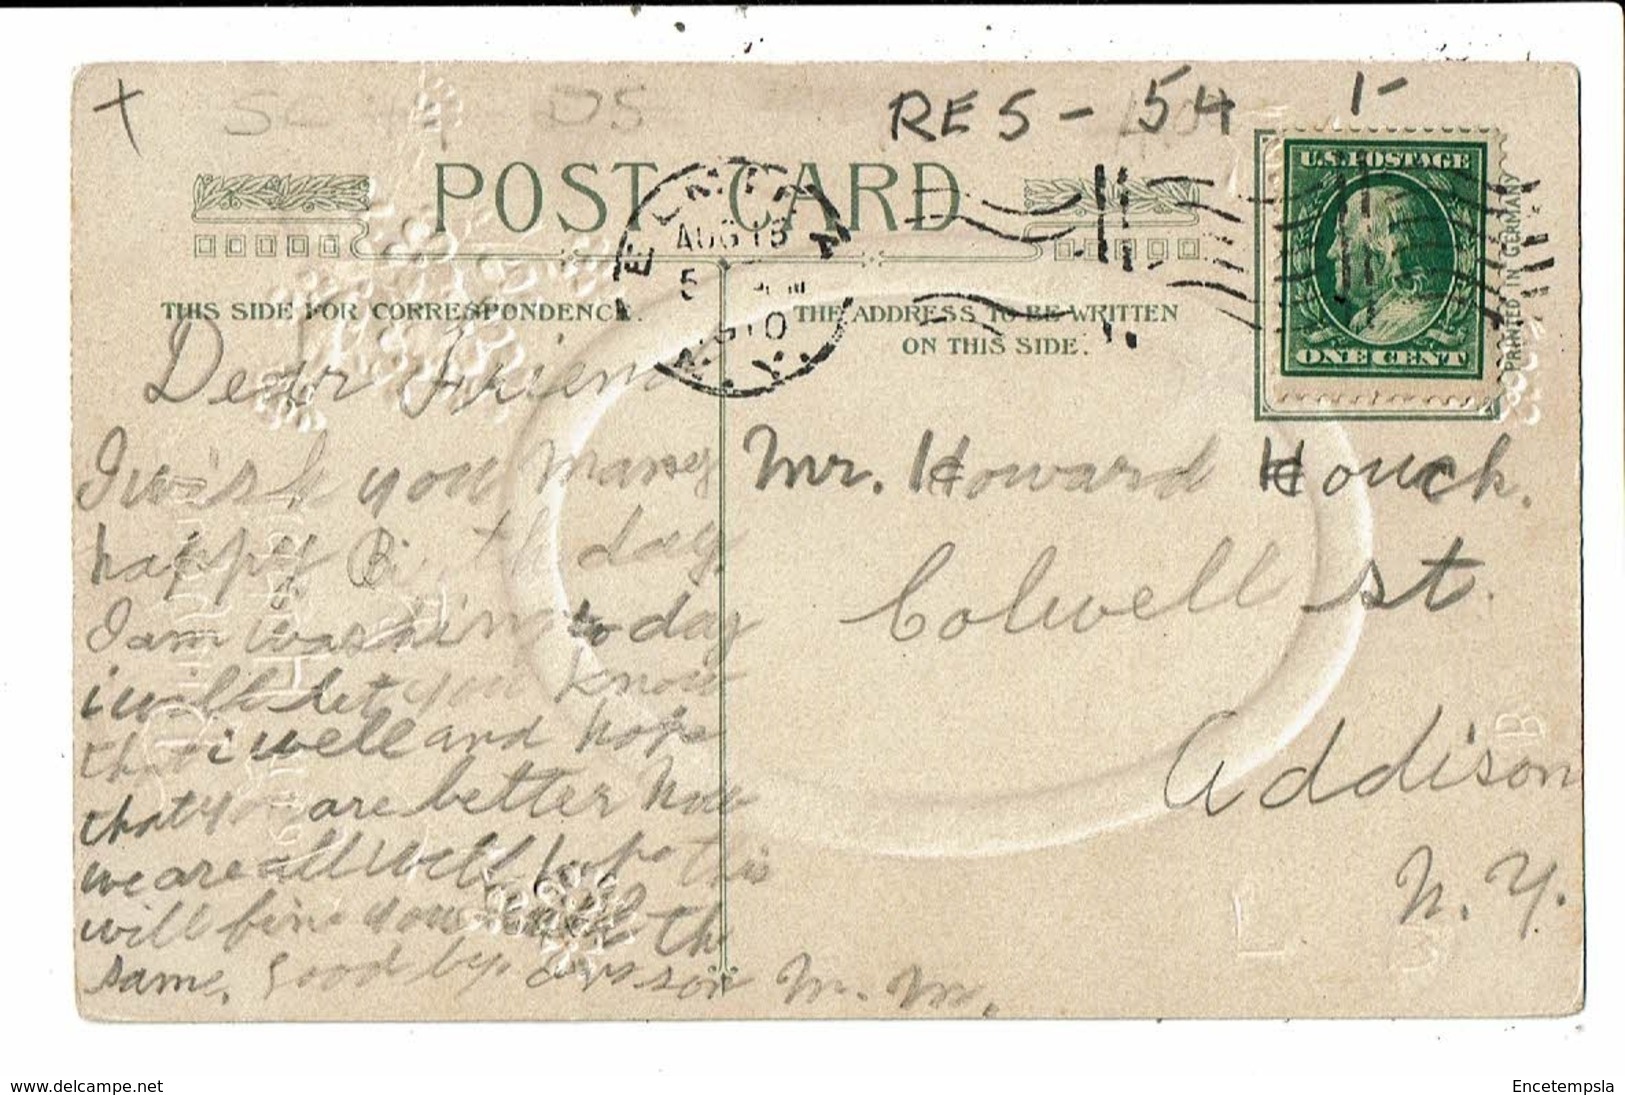 +
RES - 54
1-
POST CARD
AUG 18
5 PM
1910
N.Y.
U.S. POSTAGE
ONE CENT
PRINTED IN GERMANY
THIS SIDE FOR CORRESPONDENCE.
THE ADDRESS TO BE WRITTEN
ON THIS SIDE.
Dear Friend
I wish you many
happy Birthday.
I am washing today
i will let you know
that i well and hope
that you are better now
we are all well hope this
will fine you all the
same. Good bye
soon M. M.
Mr. Howard Houck.
Colwell st.
Addison
N. Y.
www.delcampe.net
Encetempsla